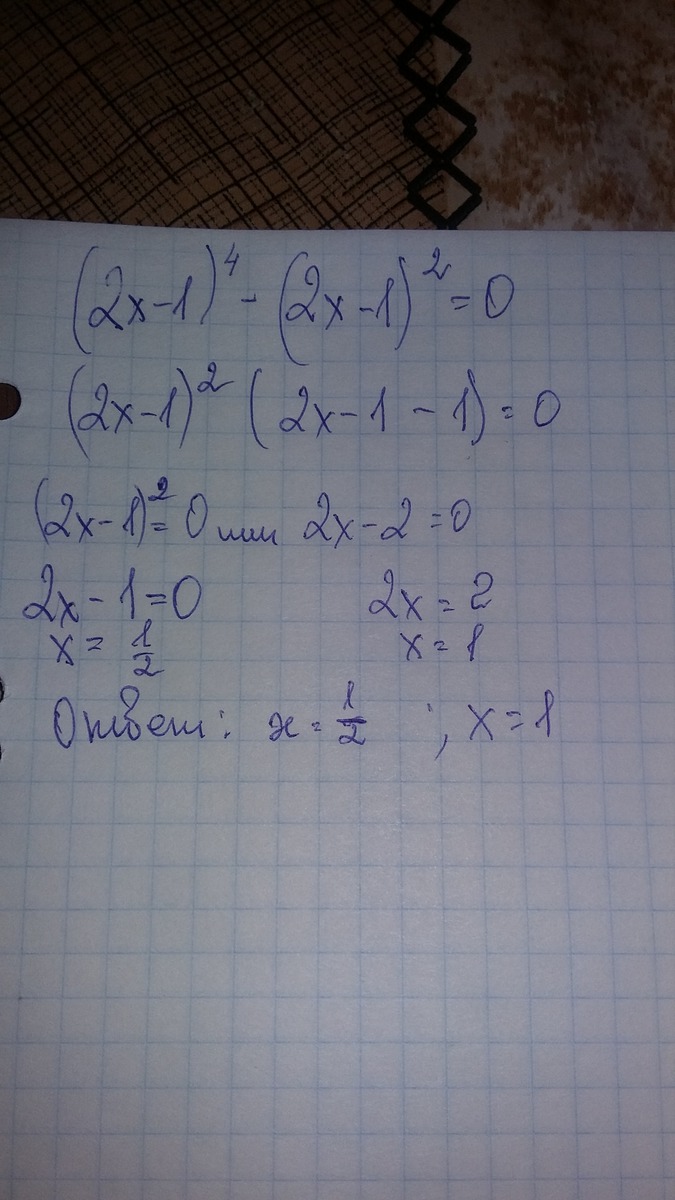 (2x-1)⁴ - (2x-1)² = 0
(2x-1)² (2x-1-1) = 0
(2x-1)² = 0 или 2x-2 = 0
2x-1=0 2x = 2
x = 1/2 x = 1
Ответ: x = 1/2 ; x = 1